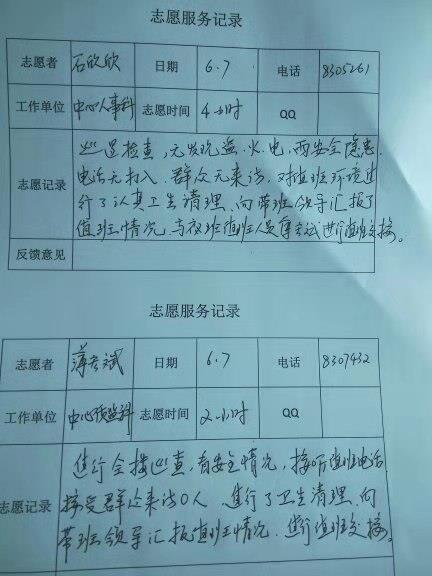 志愿服务记录
志愿者 石欣欣 日期 6.7 电话 8305261
工作单位 中心人事科 志愿时间 4小时 QQ
巡逻检查,无发现盗、火、电、雨安全隐患,
电话无打入,群众无来访,对值班环境进
志愿记录 行了认真卫生清理,向带班领导汇报了
值班情况,与夜班值班人员 进行值班交接。
反馈意见
志愿服务记录
志愿者 薄 斌 日期 6.7 电话 8307432
工作单位 中心 科 志愿时间 2小时 QQ
进行全楼巡查,有安全情况,接听值班电话
志愿记录 接受群众来访0人,进行了卫生清理,向
带班领导汇报值班情况,进行值班交接。